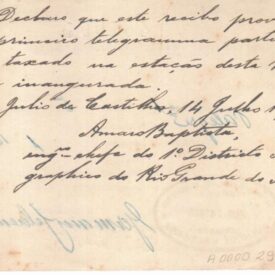 Declaro que este recibo pro
primeiro telegramma parti
taxado na estação desta
inaugurada.
Julio de Castilhos, 14 Julho 1
Amaro Baptista,
engº chefe do 1º Districto
graphico do Rio Grande do S
A0000 29